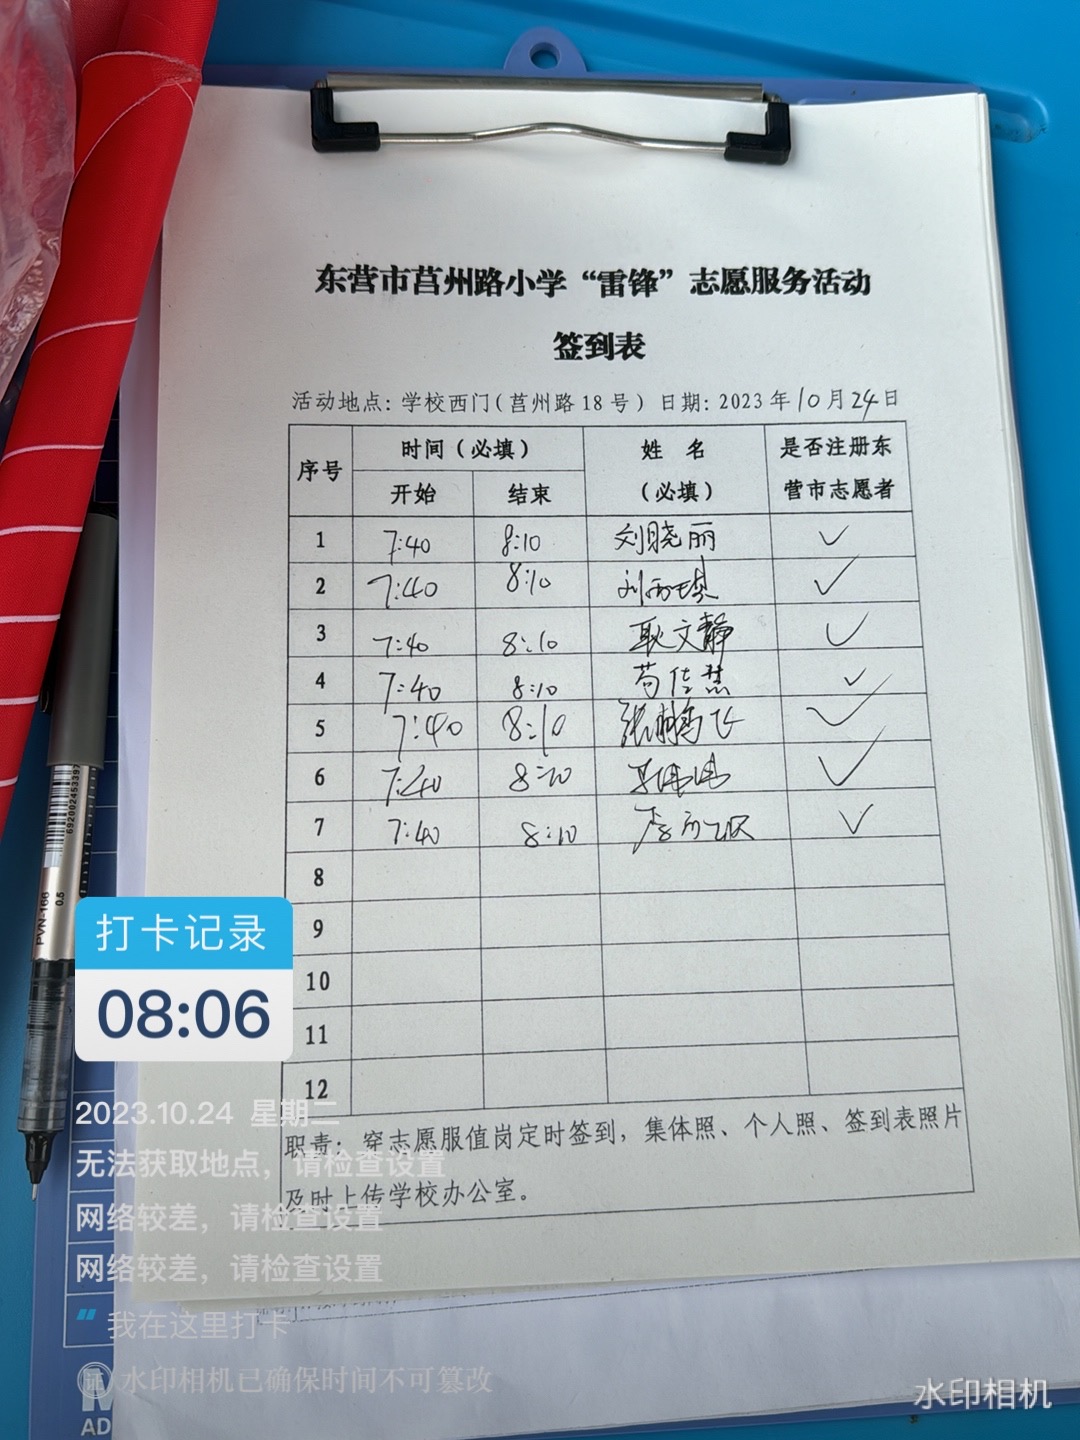 东营市莒州路小学“雷锋”志愿服务活动
签到表
活动地点：学校西门（莒州路18号）日期：2023年10月24日
序号 时间（必填） 姓名（必填） 是否注册东营市志愿者
开始 结束
1 7:40 8:10 刘晓丽 ✓
2 7:40 8:10 ✓
3 7:40 8:10 耿文静 ✓
4 7:40 8:10 苟佳慧 ✓
5 7:40 8:10 张鹏飞 ✓
6 7:40 8:10 ✓
7 7:40 8:10 ✓
8
9
10
11
12
职责：穿志愿服值岗定时签到，集体照、个人照、签到表照片
及时上传学校办公室。
打卡记录
08:06
2023.10.24 星期二
无法获取地点，请检查设置
网络较差，请检查设置
网络较差，请检查设置
我在这里打卡
证 水印相机已确保时间不可篡改
水印相机
PVN-166 0.5
6920024533397
AD